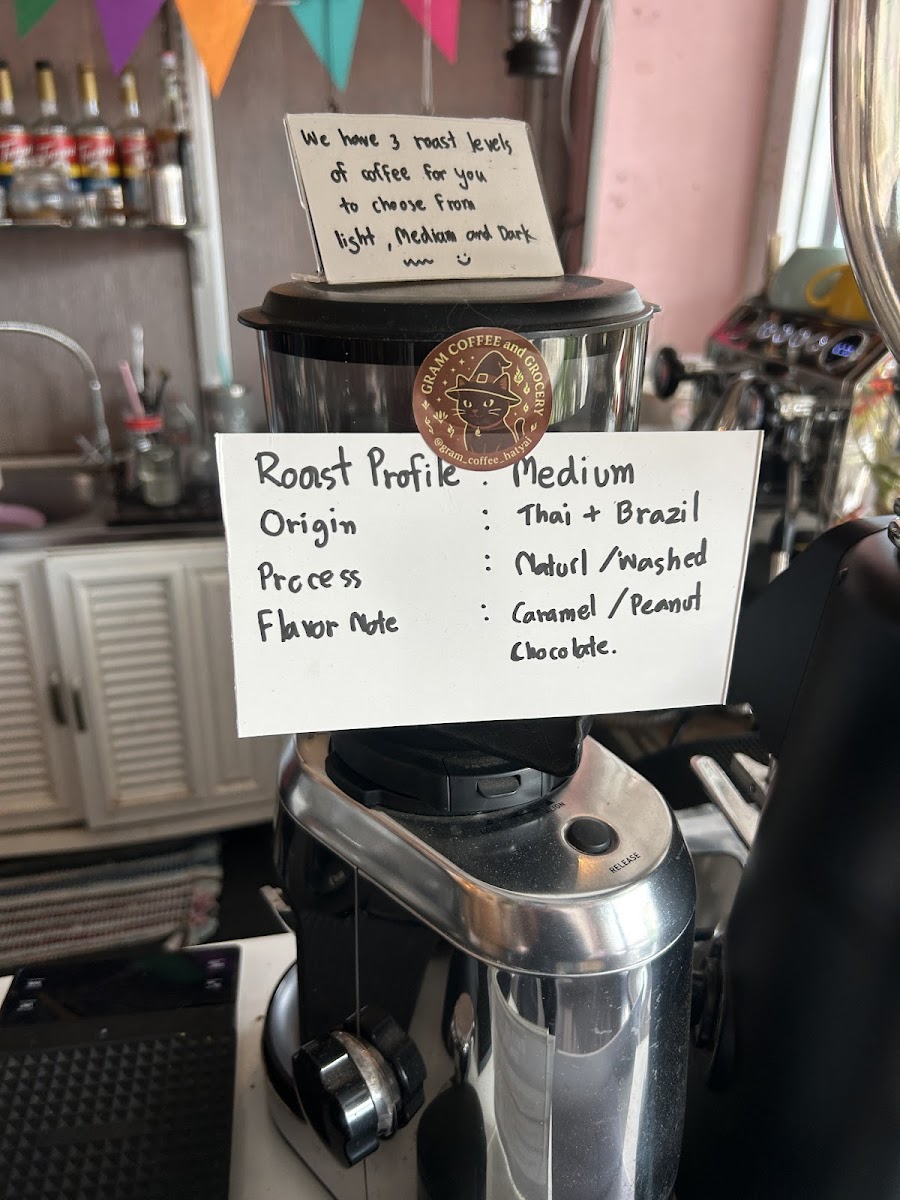 We have 3 roast levels
of coffee for you
to choose from
light, Medium and Dark
GRAM COFFEE and GROCERY
@gram_coffee_hatyai
Roast Profile : Medium
Origin : Thai + Brazil
Process : Naturl / Washed
Flavor Note : Caramel / Peanut
Chocolate.
RELEASE